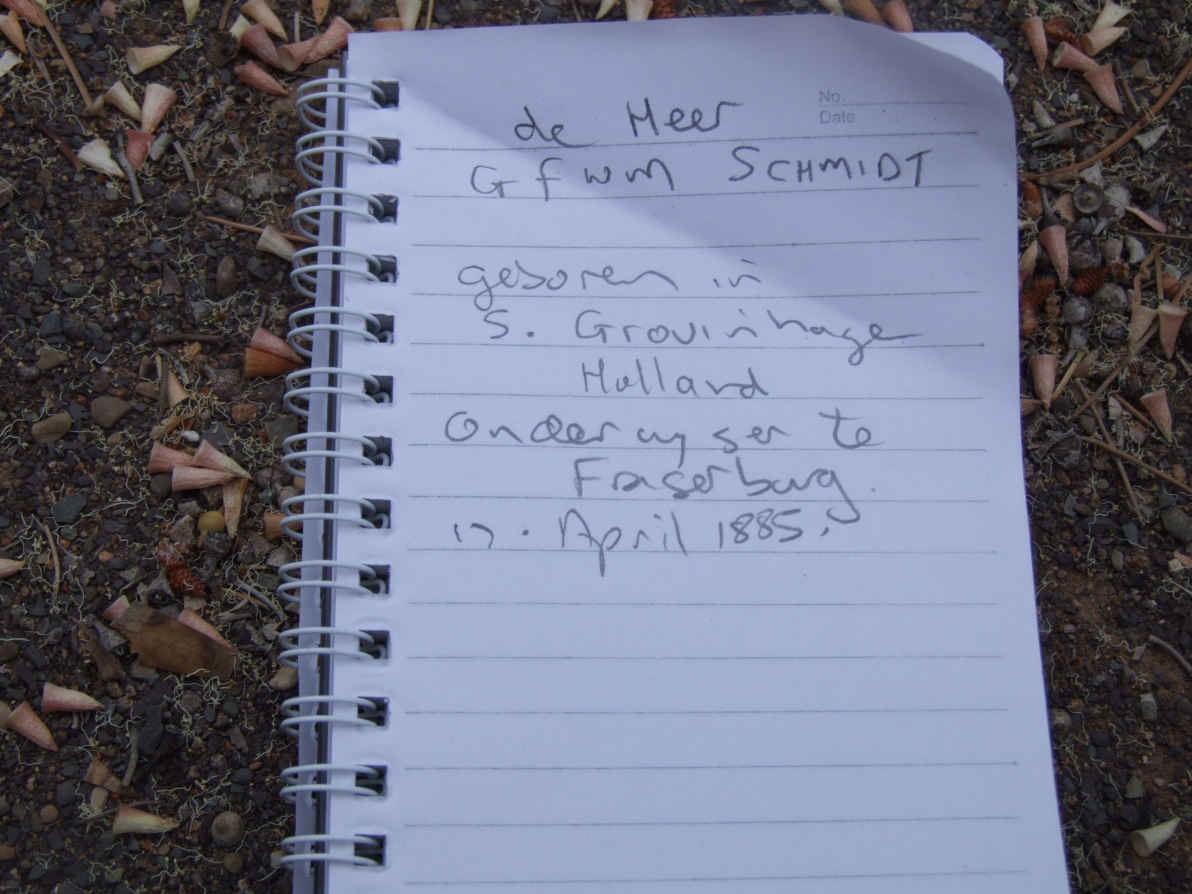 No.
Date
de Heer
G f w m SCHMIDT
geboren in
S. Grouinhage
Holland
Onderwyser te
Fraserburg.
17. April 1885.